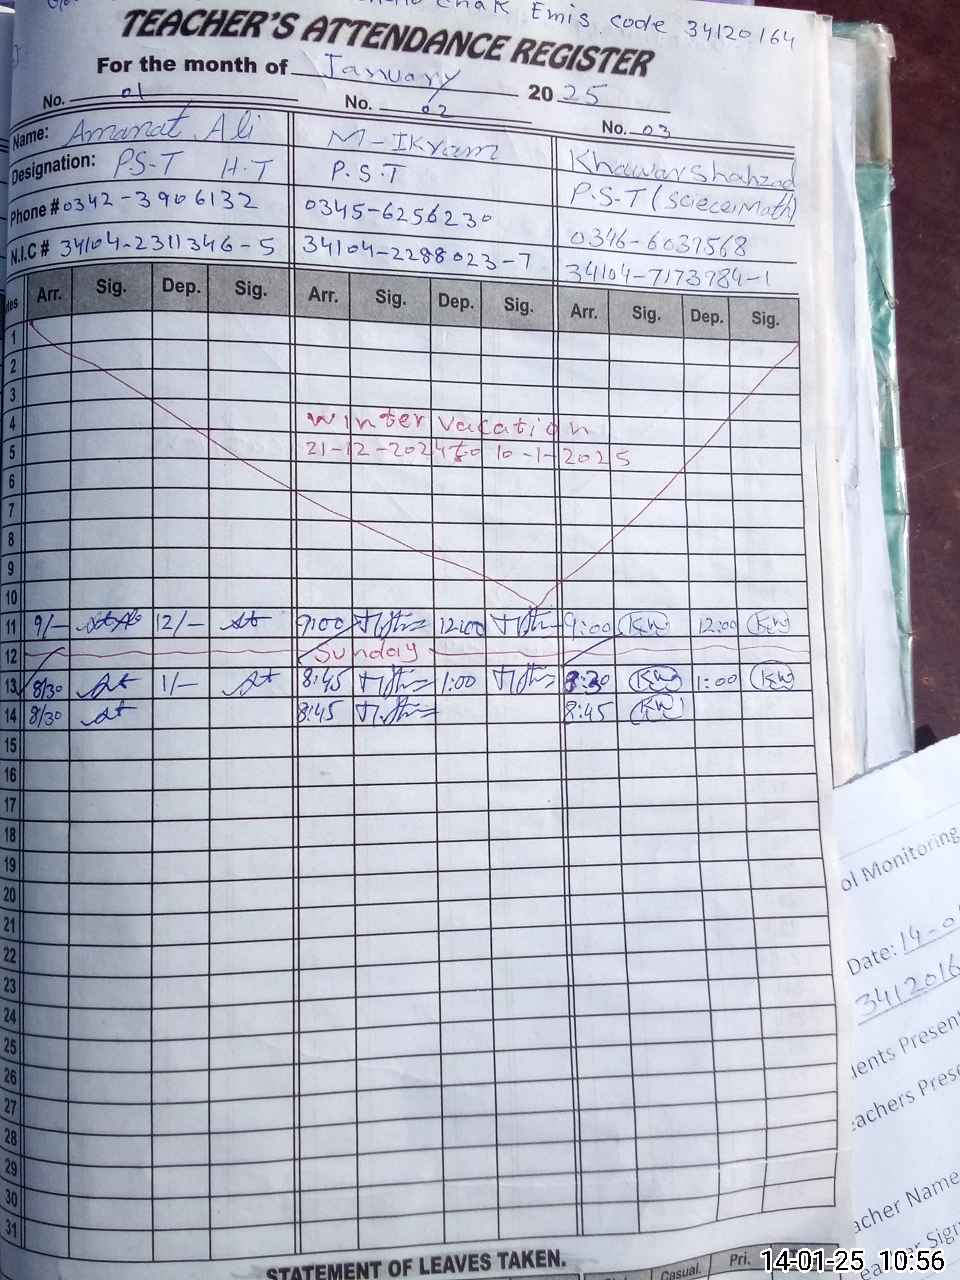 Chak Emis code 34120164
TEACHER'S ATTENDANCE REGISTER
For the month of January 2025
No. 01 No. 02 No. 03
Name: Amanat Ali M-Ikram Khawar Shahzad
Designation: P.S.T H.T P.S.T P.S.T (Sciece;Math)
Phone # 0342-3906132 0345-6256230 0346-6037568
N.I.C # 34104-2311346-5 34104-2298023-7 34104-7173984-1
Arr. Sig. Dep. Sig. Arr. Sig. Dep. Sig. Arr. Sig. Dep. Sig.
1
2
3
4 Winter vacation
5 21-12-2024 to 10-1-2025
6
7
8
9
10
11 9/- 12/- 9:00 12:00 9:00 KW 12:00 KW
12 Sunday
13 8/30 1/- 8:45 1:00 8:30 KW 1:00 KW
14 8/30 8:45 8:45 KW
15
16
17
18
19
20
21
22
23
24
25
26
27
28
29
30
31
STATEMENT OF LEAVES TAKEN.
Casual. Pri.
ol Monitoring
Date: 14-0
3412016
ents Present
eachers Prese
acher Name
Sign
14-01-25 10:56